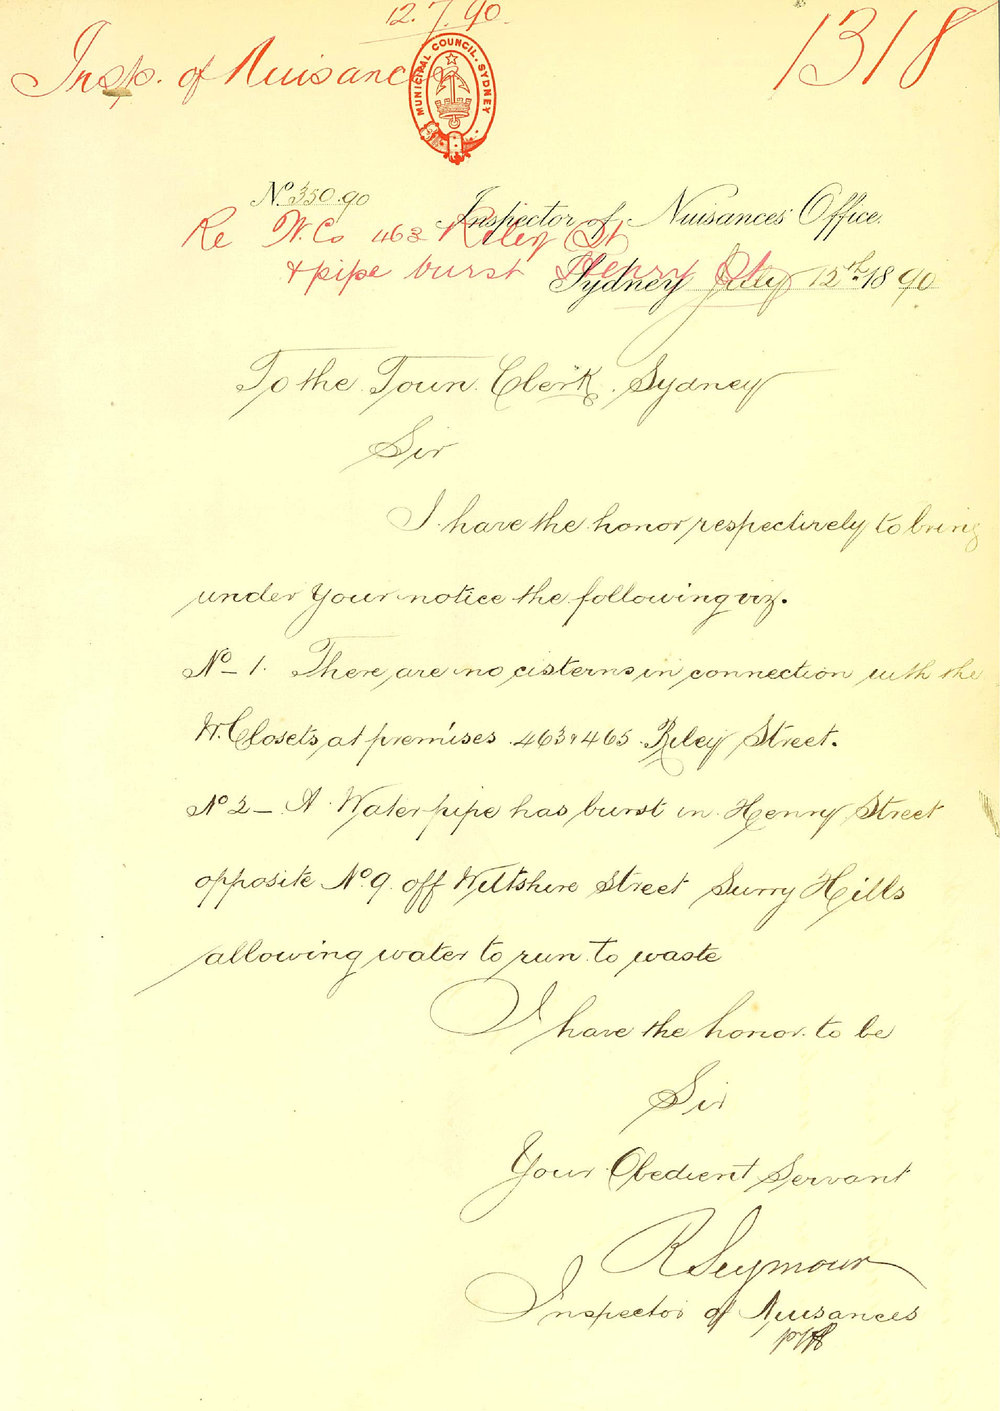 12.7.90.
Insp. of Nuisances
1318
MUNICIPAL COUNCIL. SYDNEY
No. 350.90
Inspector of Nuisances' Office.
Re W.Cs 463 Riley St
& pipe burst Henry St
Sydney July 12th 1890
To the Town Clerk. Sydney
Sir
I have the honor respectively to bring
under your notice the following viz.
No 1. There are no cisterns in connection with the
W. Closets, at premises 463 & 465 Riley Street.
No 2 – A Water pipe has burst in Henry Street
opposite No 9. off Wiltshire Street Surry Hills
allowing water to run to waste
I have the honor to be
Sir
Your Obedient Servant
R Seymour
Inspector of Nuisances